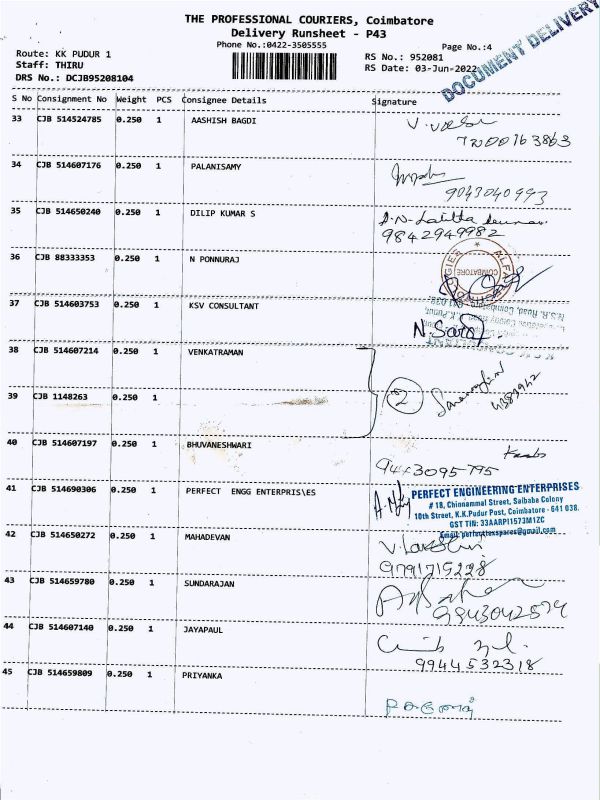 THE PROFESSIONAL COURIERS, Coimbatore
Delivery Runsheet - P43
Phone No.:0422-3505555
DOCUMENT DELIVERY
Page No.:4
Route: KK PUDUR 1
RS No.: 952081
Staff: THIRU
RS Date: 03-Jun-2022
DRS No.: DCJB95208104
S No Consignment No Weight PCS Consignee Details Signature
33 CJB 514524785 0.250 1 AASHISH BAGDI
7200163863
34 CJB 514607176 0.250 1 PALANISAMY
9043040993
35 CJB 514650240 0.250 1 DILIP KUMAR S
9842949982
36 CJB 88333353 0.250 1 N PONNURAJ
COIMBATORE
37 CJB 514603753 0.250 1 KSV CONSULTANT
N. Saroj
38 CJB 514607214 0.250 1 VENKATRAMAN
2
39 CJB 1148263 0.250 1
40 CJB 514607197 0.250 1 BHUVANESHWARI
9443095795
41 CJB 514690306 0.250 1 PERFECT ENGG ENTERPRIS\ES
PERFECT ENGINEERING ENTERPRISES
# 18, Chinnammal Street, Saibaba Colony
10th Street, K.K.Pudur Post, Coimbatore - 641 038.
GST TIN: 33AARPI1573M1ZC
42 CJB 514650272 0.250 1 MAHADEVAN
9791715228
43 CJB 514659780 0.250 1 SUNDARAJAN
9943042574
44 CJB 514607140 0.250 1 JAYAPAUL
9944532318
45 CJB 514659809 0.250 1 PRIYANKA